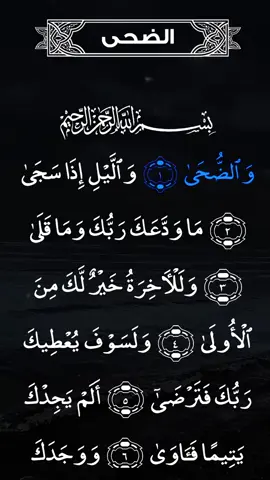 الضحى
بِسْمِ اللَّهِ الرَّحْمَٰنِ الرَّحِيمِ
وَٱلضُّحَىٰ ١ وَٱلَّيۡلِ إِذَا سَجَىٰ
٢ مَا وَدَّعَكَ رَبُّكَ وَمَا قَلَىٰ
٣ وَلَلۡأٓخِرَةُ خَيۡرٞ لَّكَ مِنَ
ٱلۡأُولَىٰ ٤ وَلَسَوۡفَ يُعۡطِيكَ
رَبُّكَ فَتَرۡضَىٰٓ ٥ أَلَمۡ يَجِدۡكَ
يَتِيمٗا فَـَٔاوَىٰ ٦ وَوَجَدَكَ